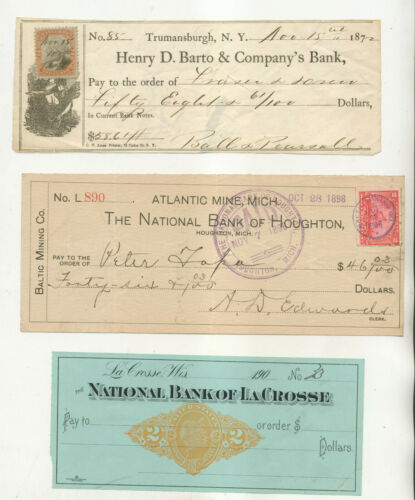 No. 85 Trumansburgh, N. Y. Nov 15 187
Henry D. Barto & Company's Bank,
Pay to the order of
Fifty Eight & 61/100 Dollars,
In Current Bank Notes.
$58.61 Ball & Pearsall
No. L 890 ATLANTIC MINE, MICH. OCT 28 1898
THE NATIONAL BANK OF HOUGHTON,
HOUGHTON, MICH.
BALTIC MINING CO.
PAY TO THE ORDER OF Peter $46.03/00
Forty-six & 03/00 DOLLARS.
A. D. Edwards
CLERK.
PAID
NOV 7
HOUGHTON,
La Crosse, Wis 190 No. 33
THE NATIONAL BANK OF LA CROSSE
Pay to or order $
2 2
Dollars